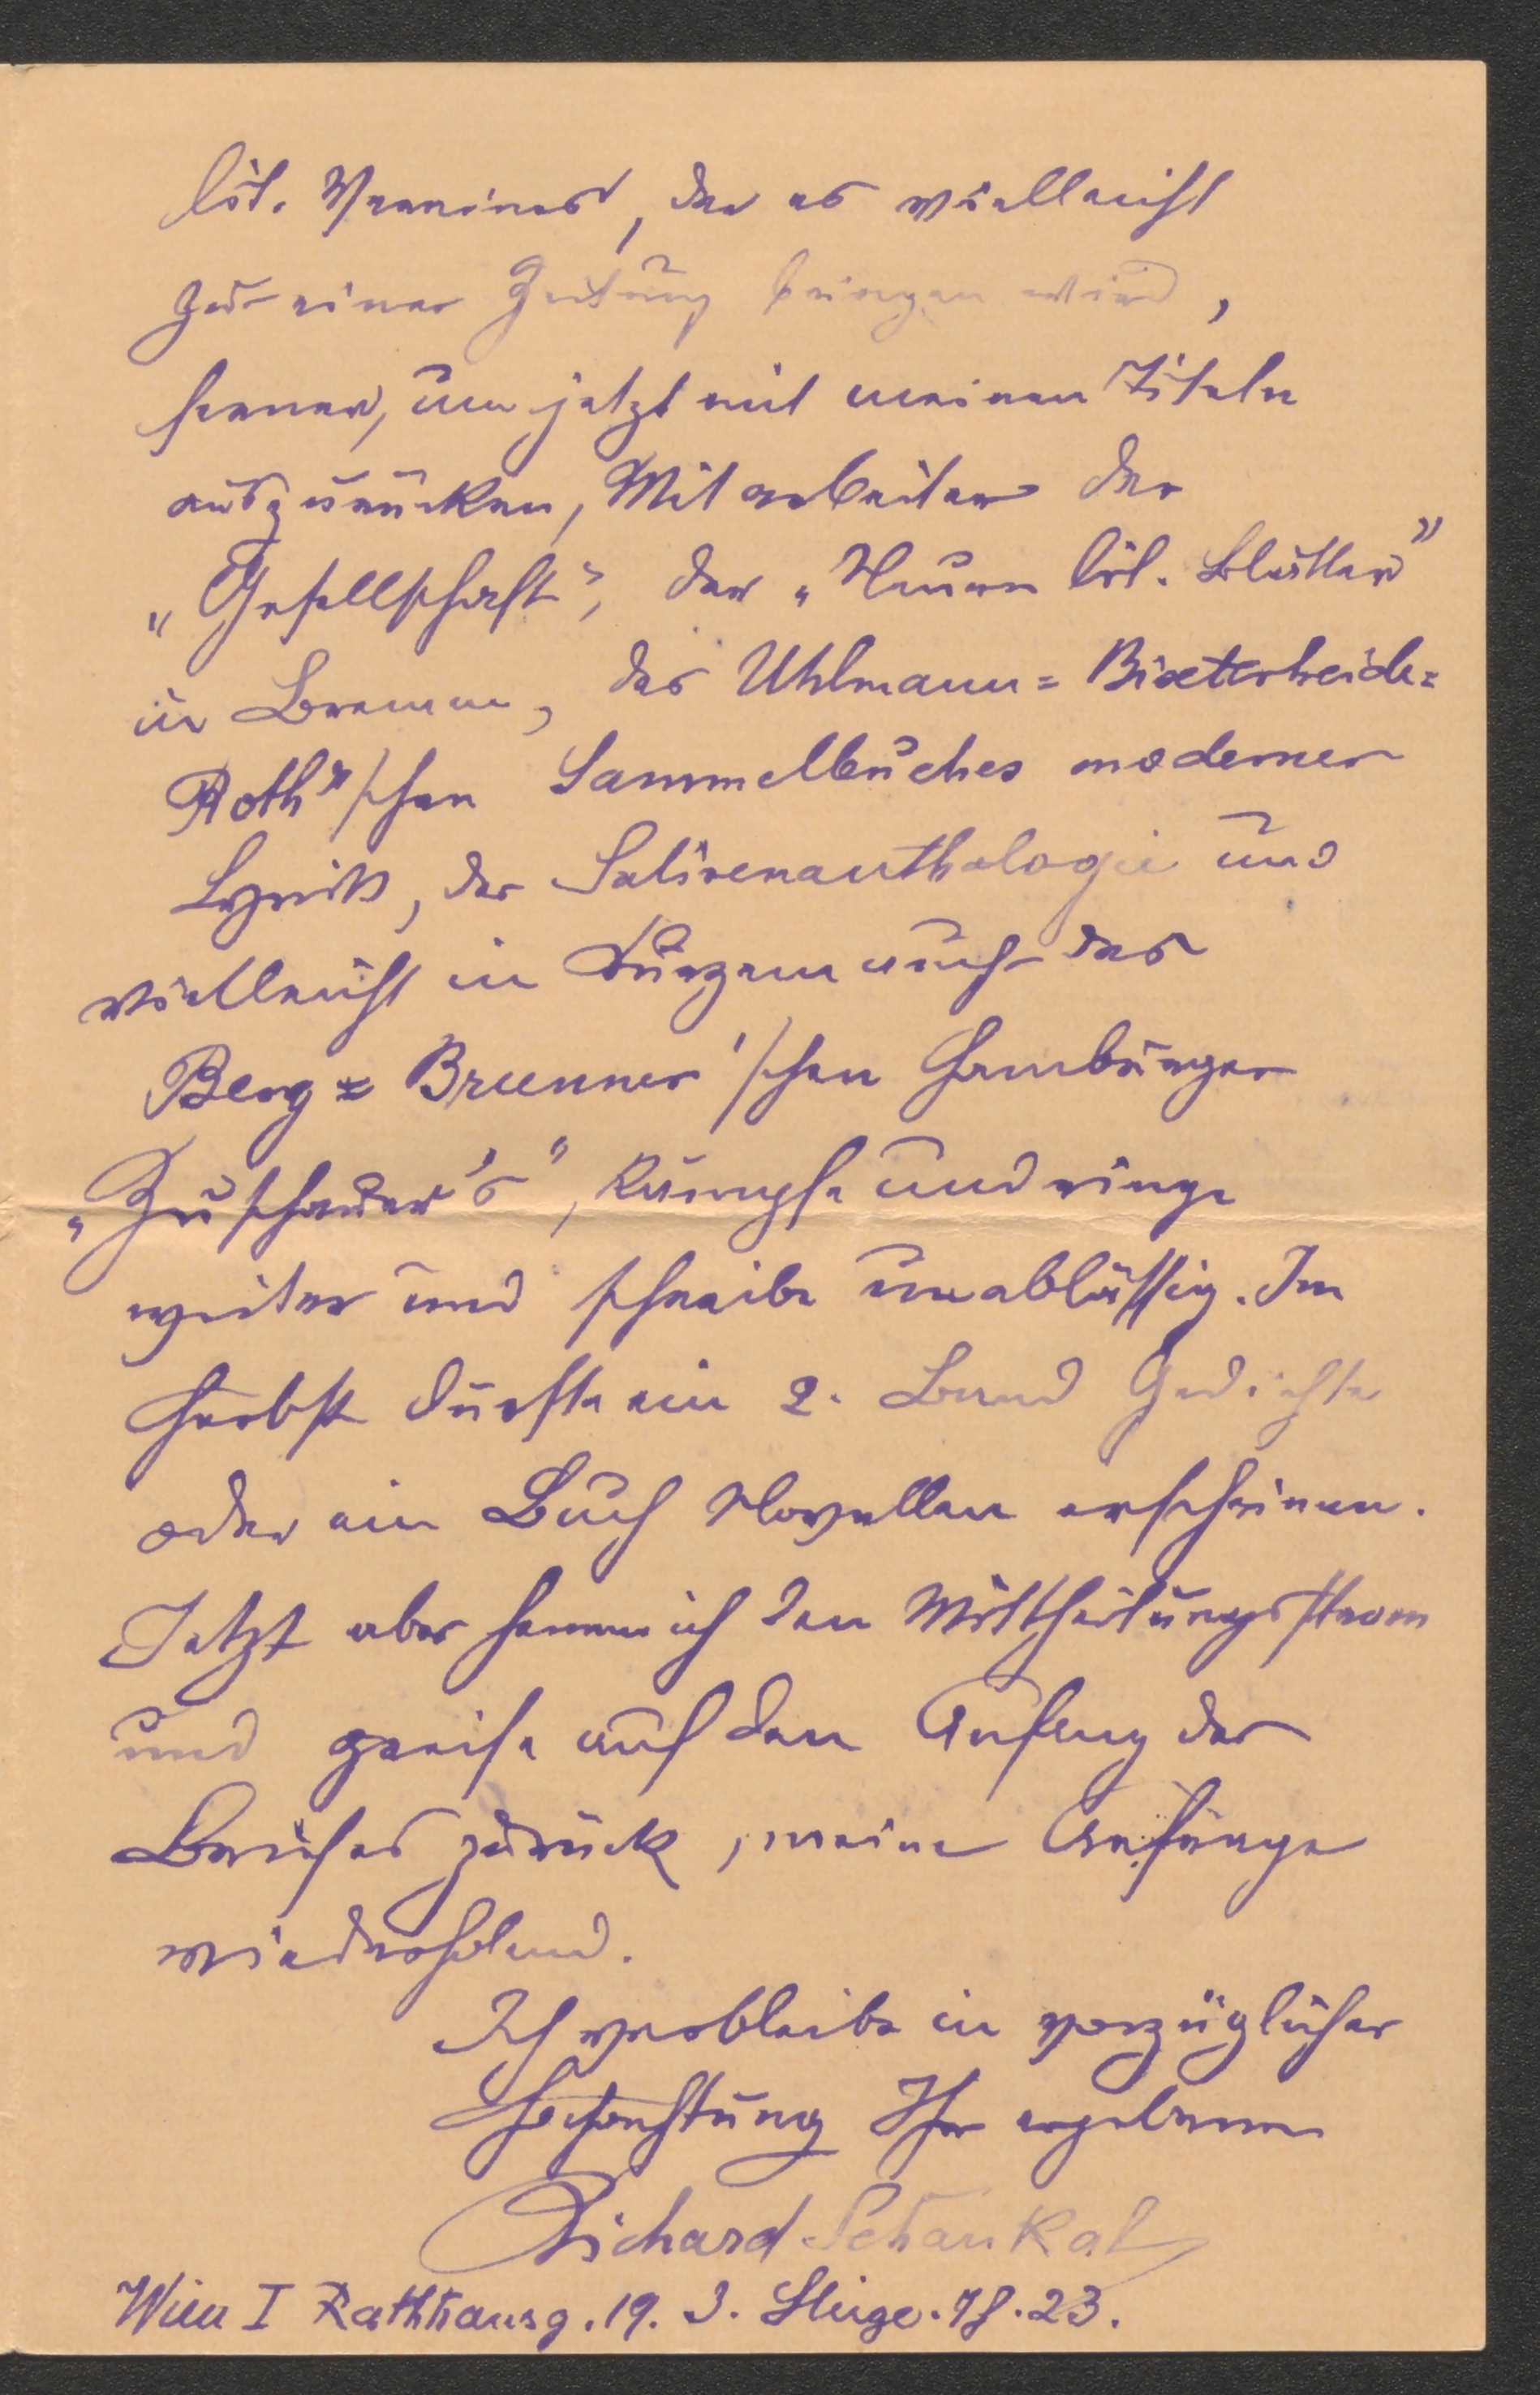 lit. Vereines, der es vielleicht
zu einer Zeitung bringen wird,
ferner, um jetzt mit meinen Titeln
auszurücken, Mitarbeiter der
„Gesellschaft“, der „Neuen lit. Blätter“
in Bremen, des Uhlmann=Bixterheide=
Roth'schen Sammelbuches moderner
Lyrik, der Satirenanthologie und
vielleicht in Kürzem auch des
Berg=Brunner'schen Hamburger
„Zuschauer's“, kämpfe und ringe
weiter und schreibe unablässig. Im
Herbst dürfte ein 2. Band Gedichte
oder ein Buch Novellen erscheinen.
Jetzt aber hemm ich den Mittheilungsstrom
und greife auf den Anfang des
Briefes zurück, meine Anfänge
wiederholend.
Ich verbleibe in vorzüglicher
Hochachtung Ihr ergebener
Richard Schaukal
Wien I Rathhausg. 19. 3. Stiege. Th. 23.